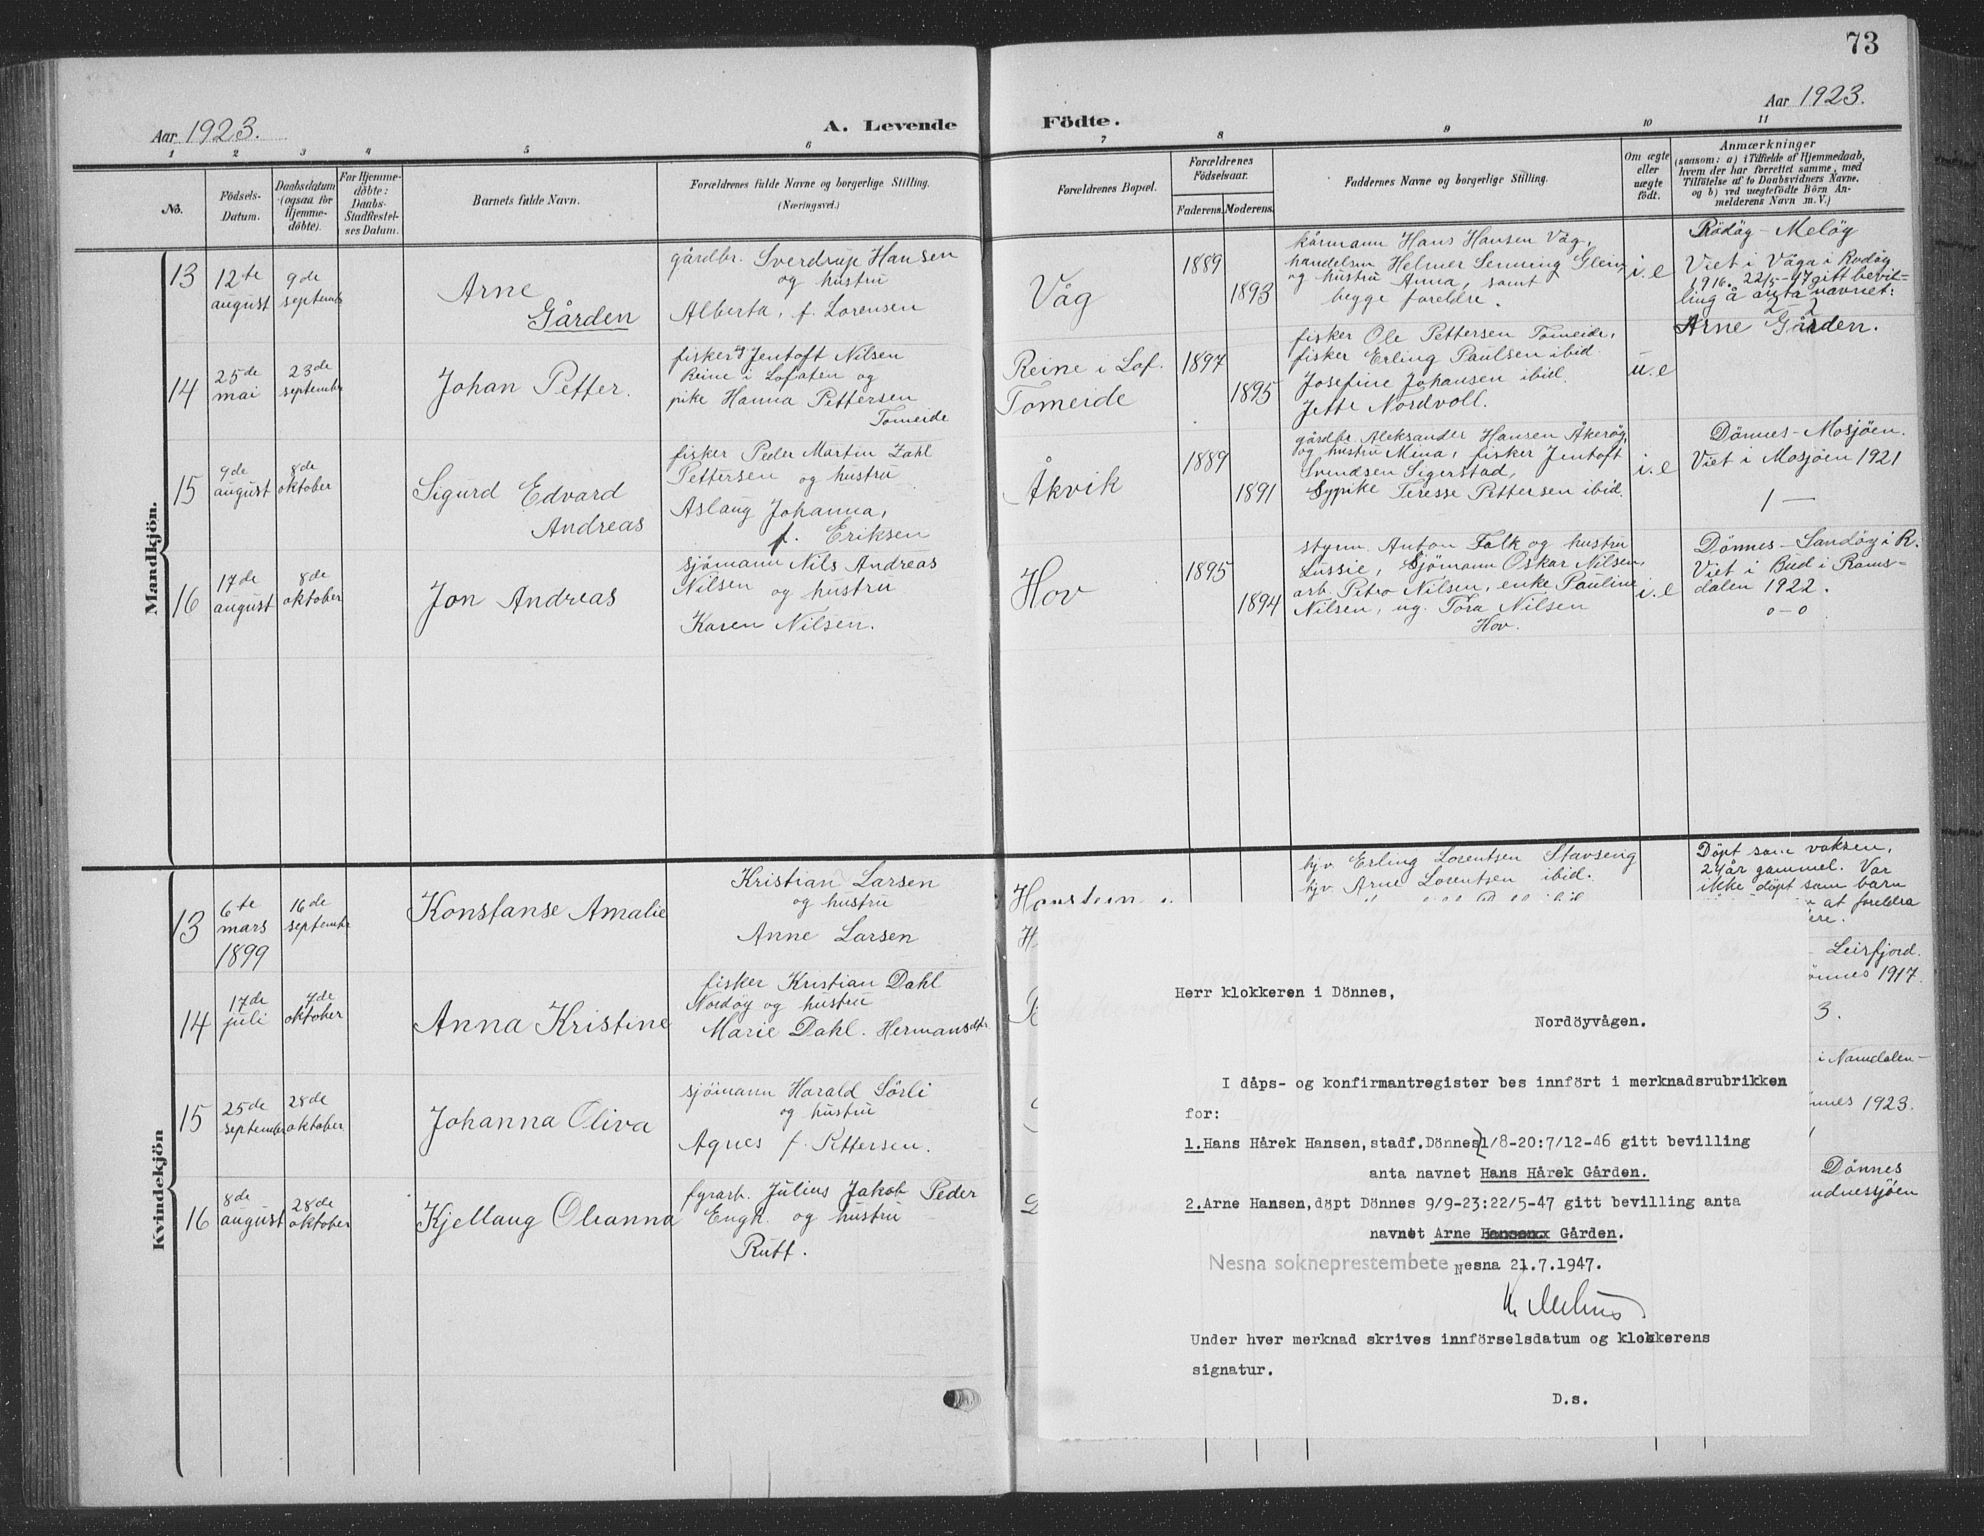 73
Aar 1923.
A. Levende
Födte.
Aar 1923.
1 2 3 4 5 6 7 8 9 10 11
No.
Födsels-
Datum.
Daabsdatum
(ogsaa for
Hjemme-
döbte).
For Hjemme-
döbte:
Daabs-
Stadfæstel-
ses Datum.
Barnets fulde Navn.
Forældrenes fulde Navne og borgerlige Stilling.
(Næringsvei.)
Forældrenes Bopæl.
Forældrenes
Födselsaar.
Faderens. Moderens.
Faddernes Navne og borgerlige Stilling.
Om ægte
eller
uægte
födt.
Anmærkninger
(saasom: a) i Tilfælde af Hjemmedaab,
hvem der har forrettet samme, med
Tilföielse af to Daabsvidners Navne.
og b) ved uægtefödte Börn An-
melderens Navn m. V.)
Mandkjön.
13
12te
august
9de
septemb
Arne
Gården
gårdbr. Sverdrup Hansen
og hustru
Alberta, f. Lorensen
Våg
1889
1893
kårmann Hans Hansen Våg,
handelsm Helmer Senning Glein
og hustru Anna, samt
begge foreldre.
i.e
Rödöy - Melöy
Viet i Våga i Rodöy
1916. 22/5-47 gitt bevil-
ling å anta navnet:
Arne Gården.
14
25de
mai
23de
september
Johan Petter.
fisker Jentoft Nilsen
Reine i Lofoten og
pike Hanna Pettersen
Tomeide
Reine i Lof.
Tomeide
1897
1895
fisker Ole Pettersen Tomeide,
fisker Erling Paulsen ibid.
Josefine Johansen ibid.
Jette Nordvoll.
u.e
15
9de
august
8de
oktober
Sigurd Edvard
Andreas
fisker Peder Martin Zahl
Pettersen og hustru
Aslaug Johanna,
f. Eriksen
Åkvik
1889
1891
gårdbr. Aleksander Hansen Åkeröy,
og hustru Mina, fisker Jentoft
Svendsen Sigerstad,
Sypike Teresse Pettersen ibid.
i.e
Dönnes - Mosjöen.
Viet i Mosjöen 1921
16
17de
august
8de
oktober
Jon Andreas
sjömann Nils Andreas
Nilsen og hustru
Karen Nilsen.
Hov
1895
1894
styrm. Anton Falk og hustru
Lussie, Sjömann Oskar Nilsen,
arb. Petro Nilsen, enke Pauline
Nilsen, ug. Tora Nilsen
Hov.
i.e
Dönnes - Sandöy i R.
Viet i Bud i Roms-
dalen 1922.
o-o
Kvindekjön
13
6te
mars
1899
16de
septembr
Konstanse Amalie
Kristian Larsen
og hustru
Anne Larsen
hjv. Erling Lorentsen Stavseng
hjv. Arne Lorentsen ibid.
Döpt som voksen,
24 år gammel. Var
ikke döpt som barn
at foreldra
ere.
14
17de
juli
7de
oktober
Anna Kristine
fisker Kristian Dahl
Nordöy og hustru
Marie Dahl. Hermansdtr.
Leirfjord.
önnes 1917.
3.
15
25de
september
28de
oktober
Johanna Oliva
sjömann Harald Sörli
og hustru
Agnes f. Pettersen.
i Namdalen-
nnes 1923.
16
8de
august
28de
oktober
Kjellaug Oleanna
fyrarb. Julius Jakob Peder
Engh. og hustru
Rutt.
Dönnes
ndnessjöen
Herr klokkeren i Dönnes,
Nordöyvågen.
I dåps- og konfirmantregister bes innfört i merknadsrubrikken
for:
1.Hans Hårek Hansen, stadf.Dönnes 1/8-20:7/12-46 gitt bevilling
anta navnet Hans Hårek Gården.
2.Arne Hansen, döpt Dönnes 9/9-23:22/5-47 gitt bevilling anta
navnet Arne Hansenx Gården.
Nesna sokneprestembete Nesna 21.7.1947.
Under hver merknad skrives innförselsdatum og klokkerens
signatur.
D.s.